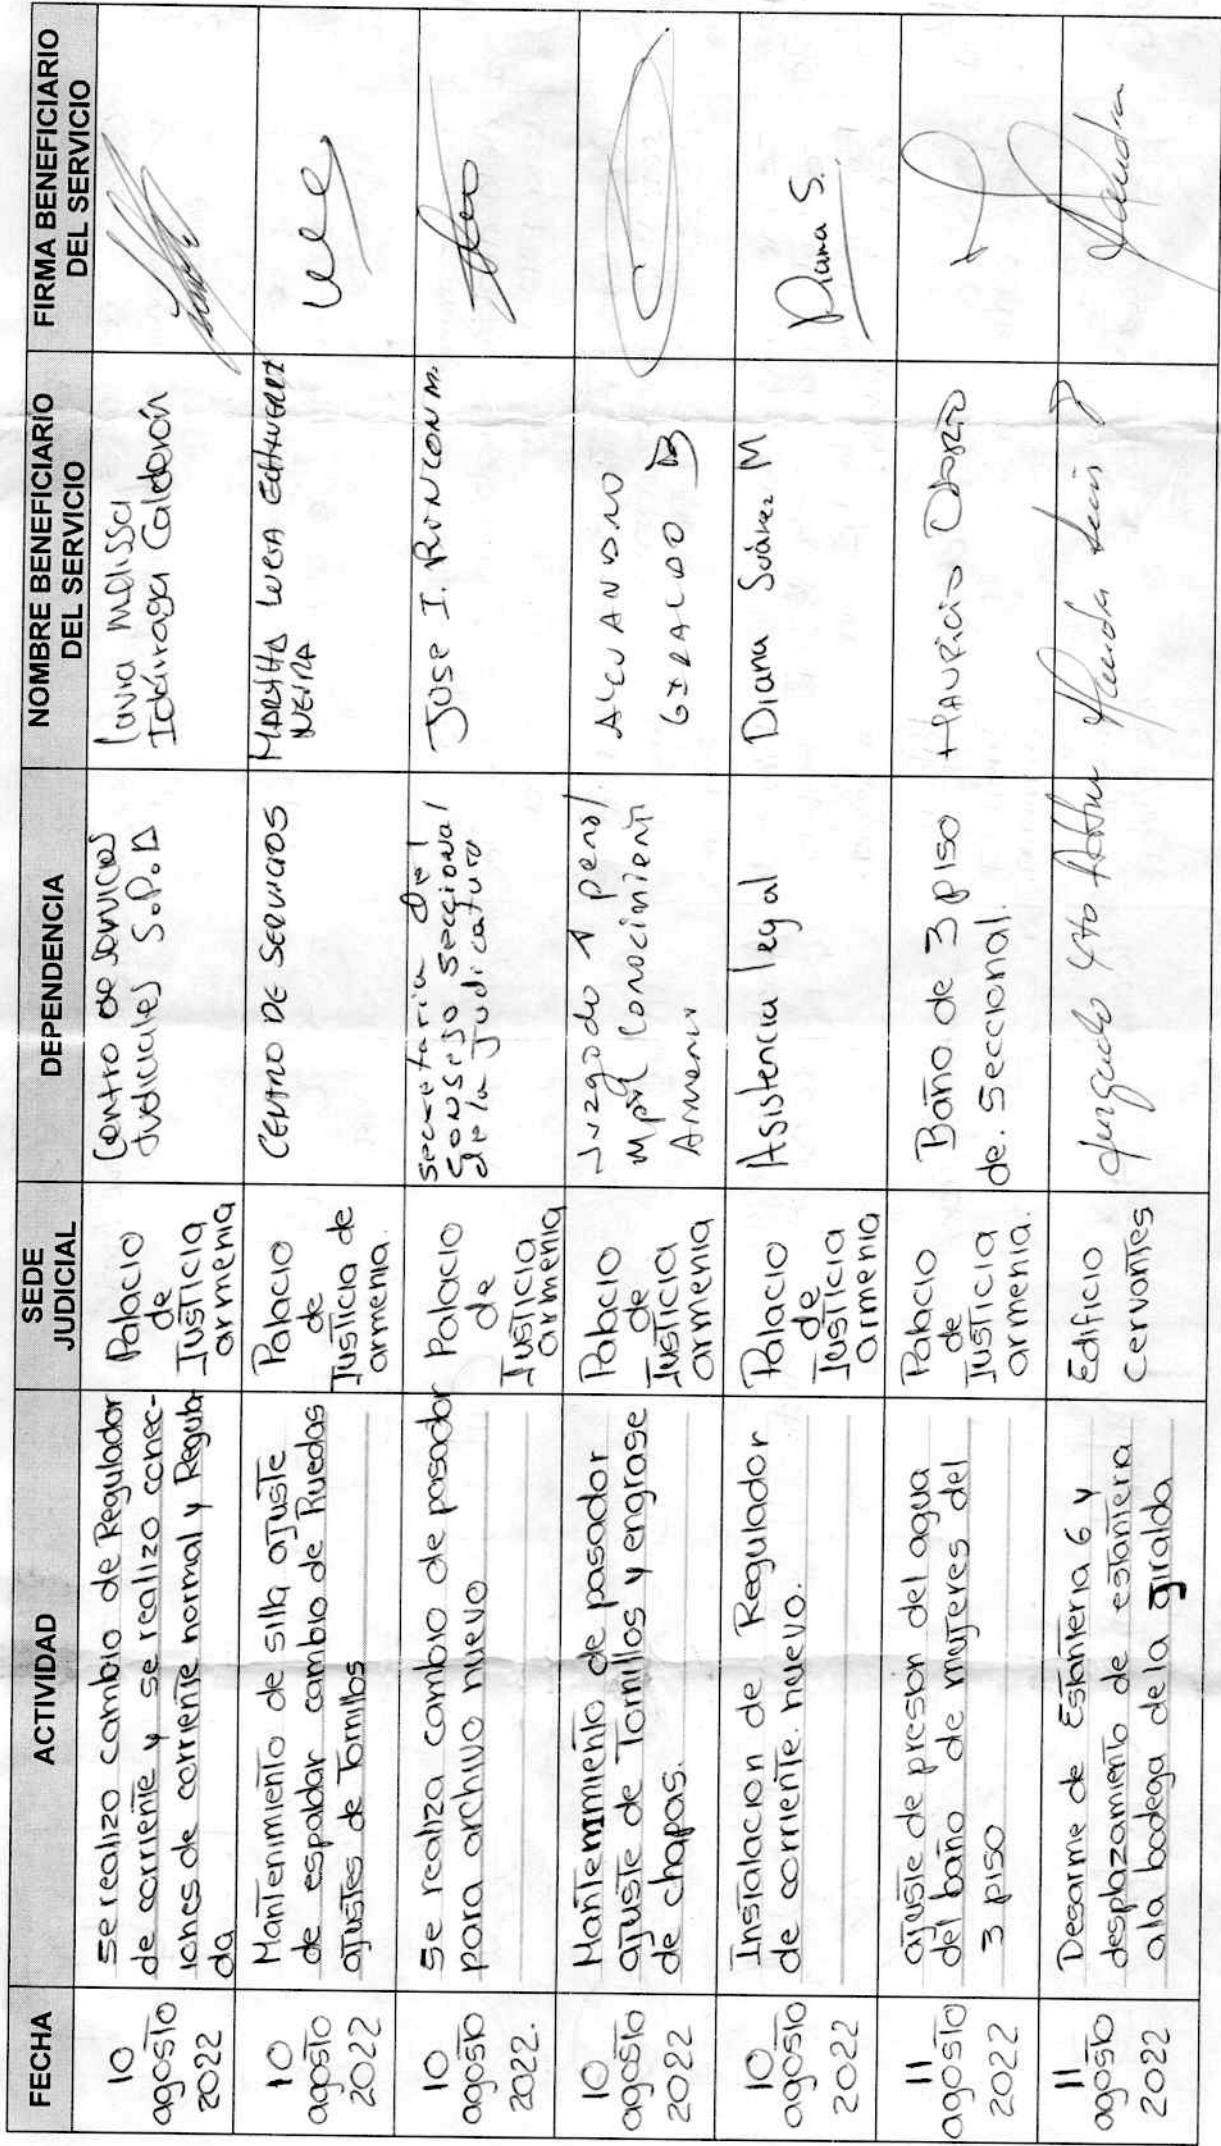 FECHA
ACTIVIDAD
SEDE
JUDICIAL
DEPENDENCIA
NOMBRE BENEFICIARIO
DEL SERVICIO
FIRMA BENEFICIARIO
DEL SERVICIO
10
agosto
2022
se realizo cambio de Regulador
de corriente y se realizo conec-
iones de corriente normal y Regula
da
Palacio
de
Justicia
armenia
Centro de servicios
Judiciales S.P.A
Laura Melissa
Idárraga Calderón
10
agosto
2022
Mantenimiento de silla ajuste
de espaldar cambio de Ruedas
ajustes de Tornillos
Palacio
de
Justicia de
armenia.
CENTRO DE SERVICIOS
MARTHA LUCIA ECHAVERRI
NEIRA
10
agosto
2022.
se realiza cambio de pasador
para archivo nuevo
Palacio
de
Justicia
armenia
secretaria Del
Consejo Seccional
de la Judicatura
JOSE I. RINCON M.
10
agosto
2022
Mantemimiento de pasador
ajuste de Tornillos y engrase
de chapas.
Palacio
de
Justicia
armenia
Juzgado 1 penal
Mpal Conocimiento
Armenia
GIRALDO B
10
agosto
2022
Instalacion de Regulador
de corriente. nuevo.
Palacio
de
Justicia
armenia
Asistencia legal
Diana Suárez M
Diana S.
11
agosto
2022
ajuste de presion del agua
del baño de mujeres del
3 piso
Palacio
de
Justicia
armenia.
Baño de 3 piso
de. Seccional.
MAURICIO OSORIO
11
agosto
2022
Desarme de Estanteria 6 y
desplazamiento de estanteria
a la bodega de la giralda
Edificio
Cervantes
Juzgado 4to